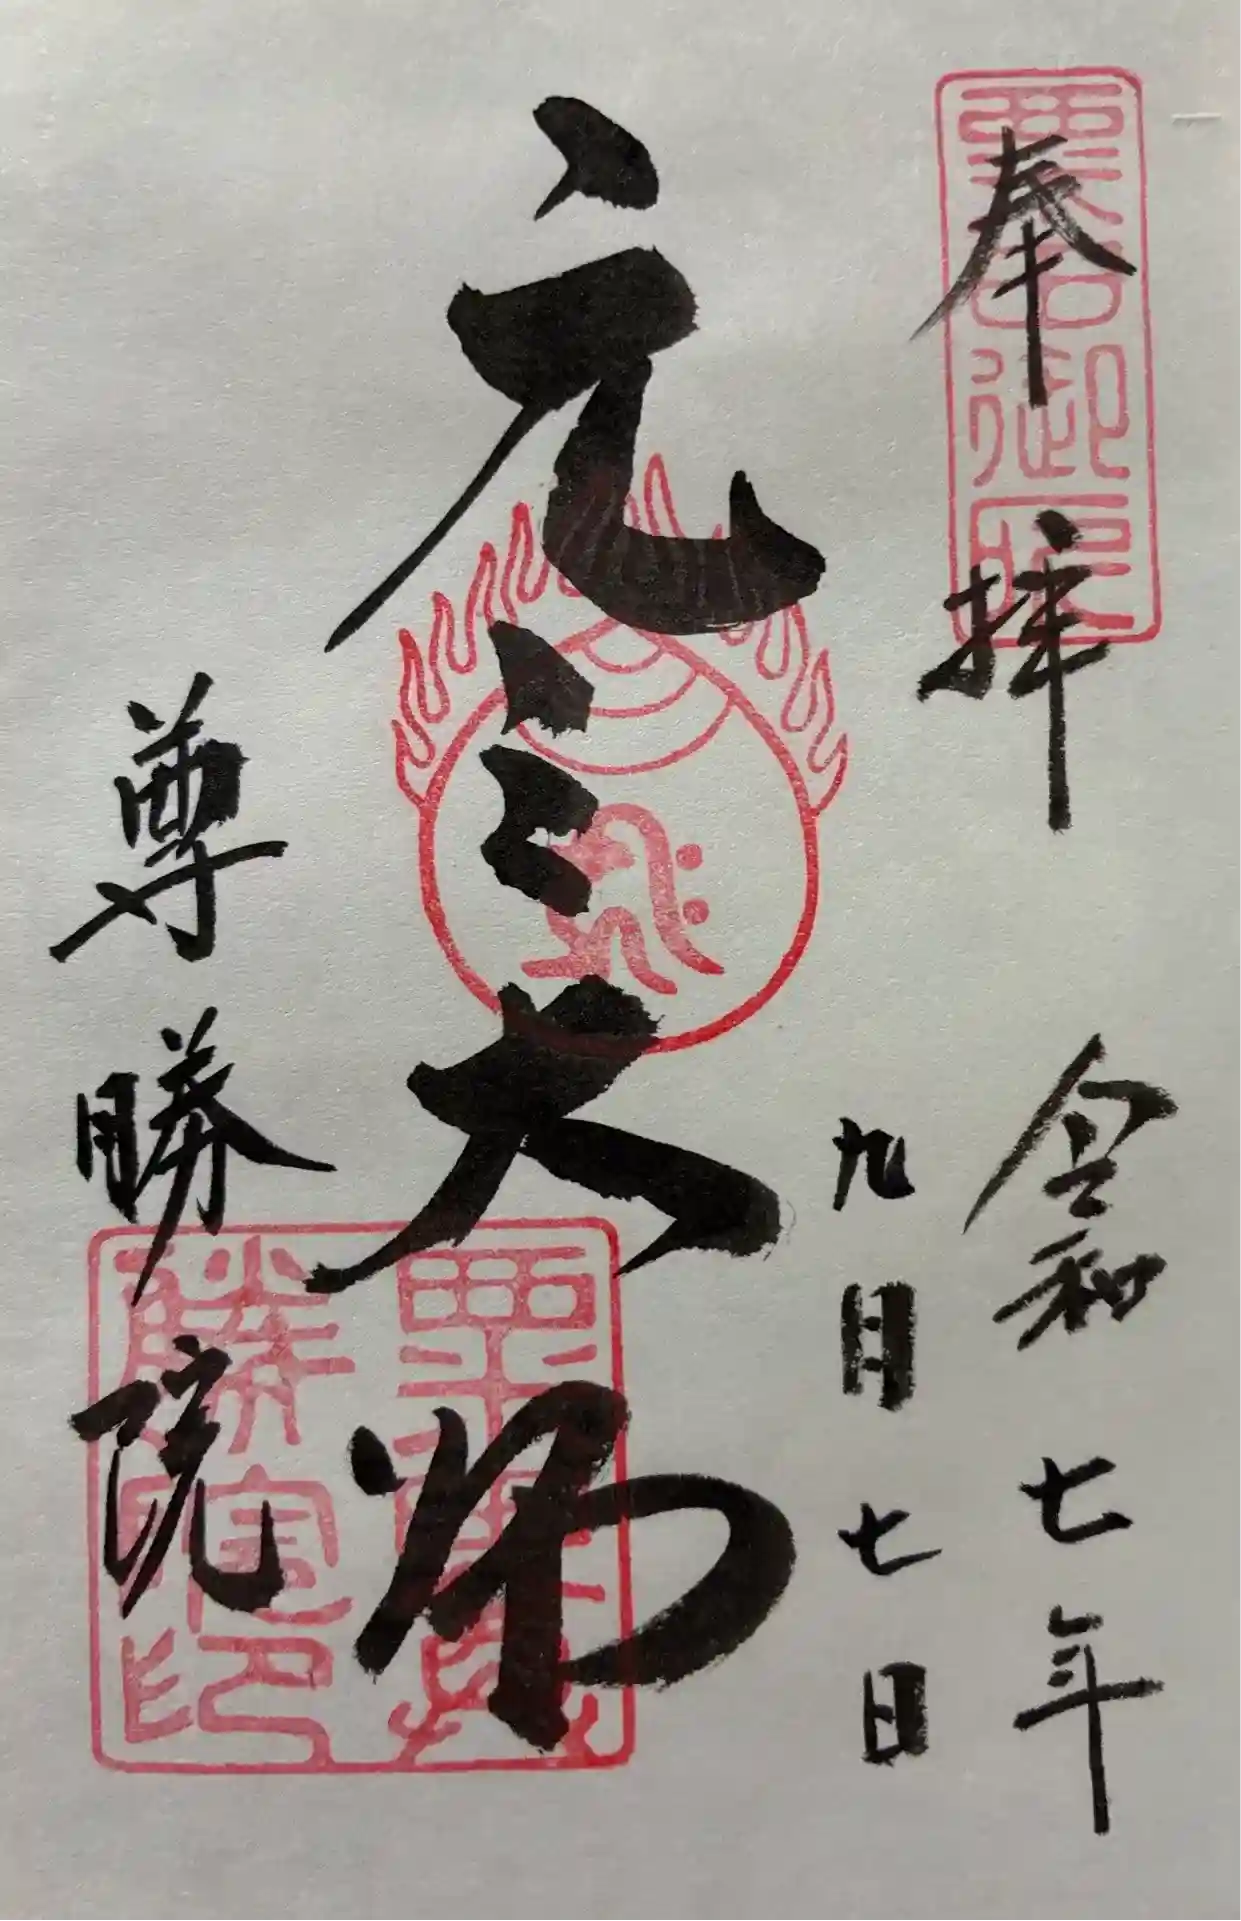 奉拝
令和七年
九月七日
元三大師
尊勝院
勝院印